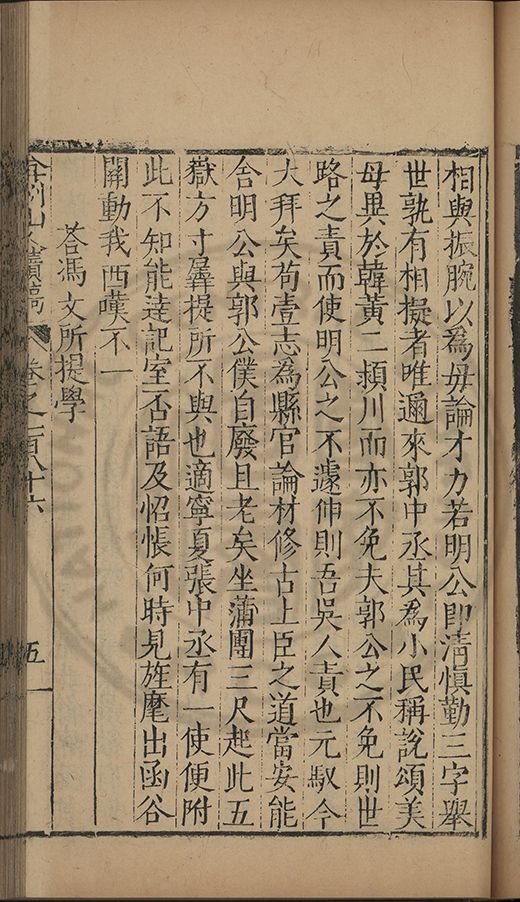 相與振腕以為毋論才力若明公即清慎勤三字舉
世孰有相擬者唯邇來郭中丞其為小民稱說頌美
毋異於韓黃二潁川而亦不免夫郭公之不免則世
路之責而使明公之不遽伸則吾吳人責也元馭今
大拜矣苟壹志為縣官論材修古上臣之道當安能
舍明公與郭公僕自廢且老矣坐蒲團三尺起此五
嶽方寸鼻提所不與也適寧夏張中丞有一使便附
此不知能達記室否語及怊悵何時見旌麾出函谷
關動我西嘆不一
荅馮文所提學
弇州山人續稿
卷之一百八十六
五